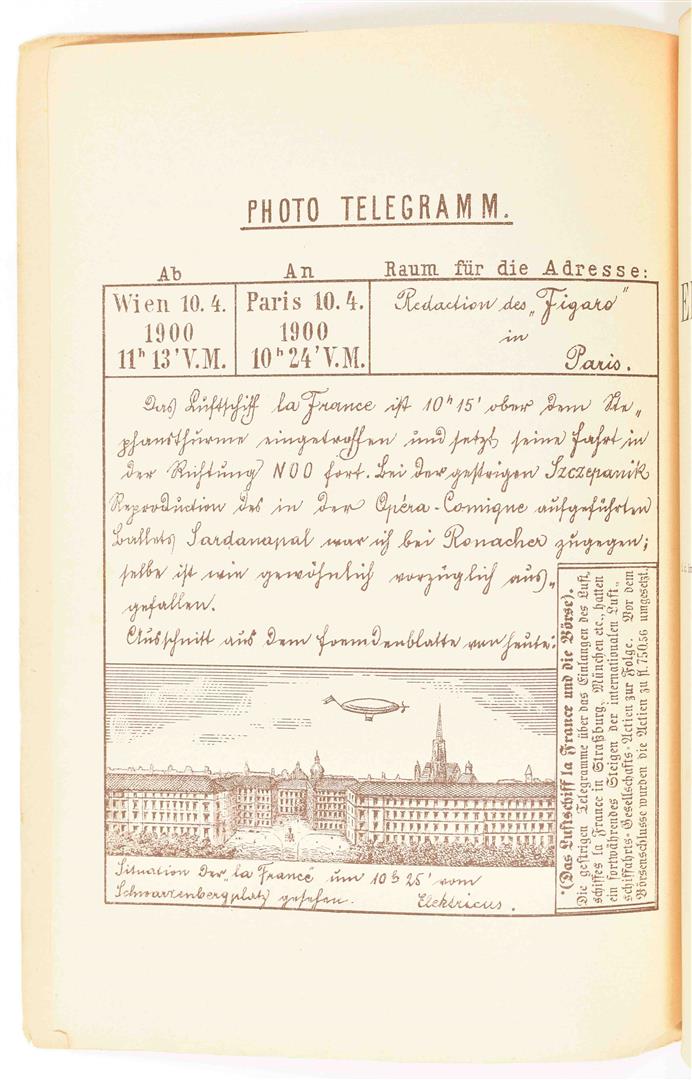 PHOTO TELEGRAMM.
Ab An Raum für die Adresse:
Wien 10.4. 1900 11ʰ 13' V.M.
Paris 10.4. 1900 10ʰ 24' V.M.
Redaction des „Figaro"
in
Paris.
Das Luftschiff la France ist 10ʰ 15' ober dem Ste„
phansthurme eingetroffen und setzt seine Fahrt in
der Richtung NOO fort. Bei der gestrigen Szczepanik
Reproduction des in der Opéra-Comique aufgeführten
Ballets Sardanapal war ich bei Ronacher zugegen;
selbe ist wie gewöhnlich vorzüglich aus„
gefallen.
Ausschnitt aus dem Fremdenblatte von heute:
*(Das Luftschiff la France und die Börse).
Die gestrigen Telegramme über das Einlangen des Luft„
schiffes la France in Straßburg, München etc., hatten
ein fortwährendes Steigen der internationalen Luft„
schiffahrts-Gesellschafts-Actien zur Folge. Vor dem
Börsenschlusse wurden die Actien zu fl. 750.56 umgesetzt.
Situation der „la France" um 10ʰ 25' vom
Schwarzenbergplatz gesehen. Elektricus.